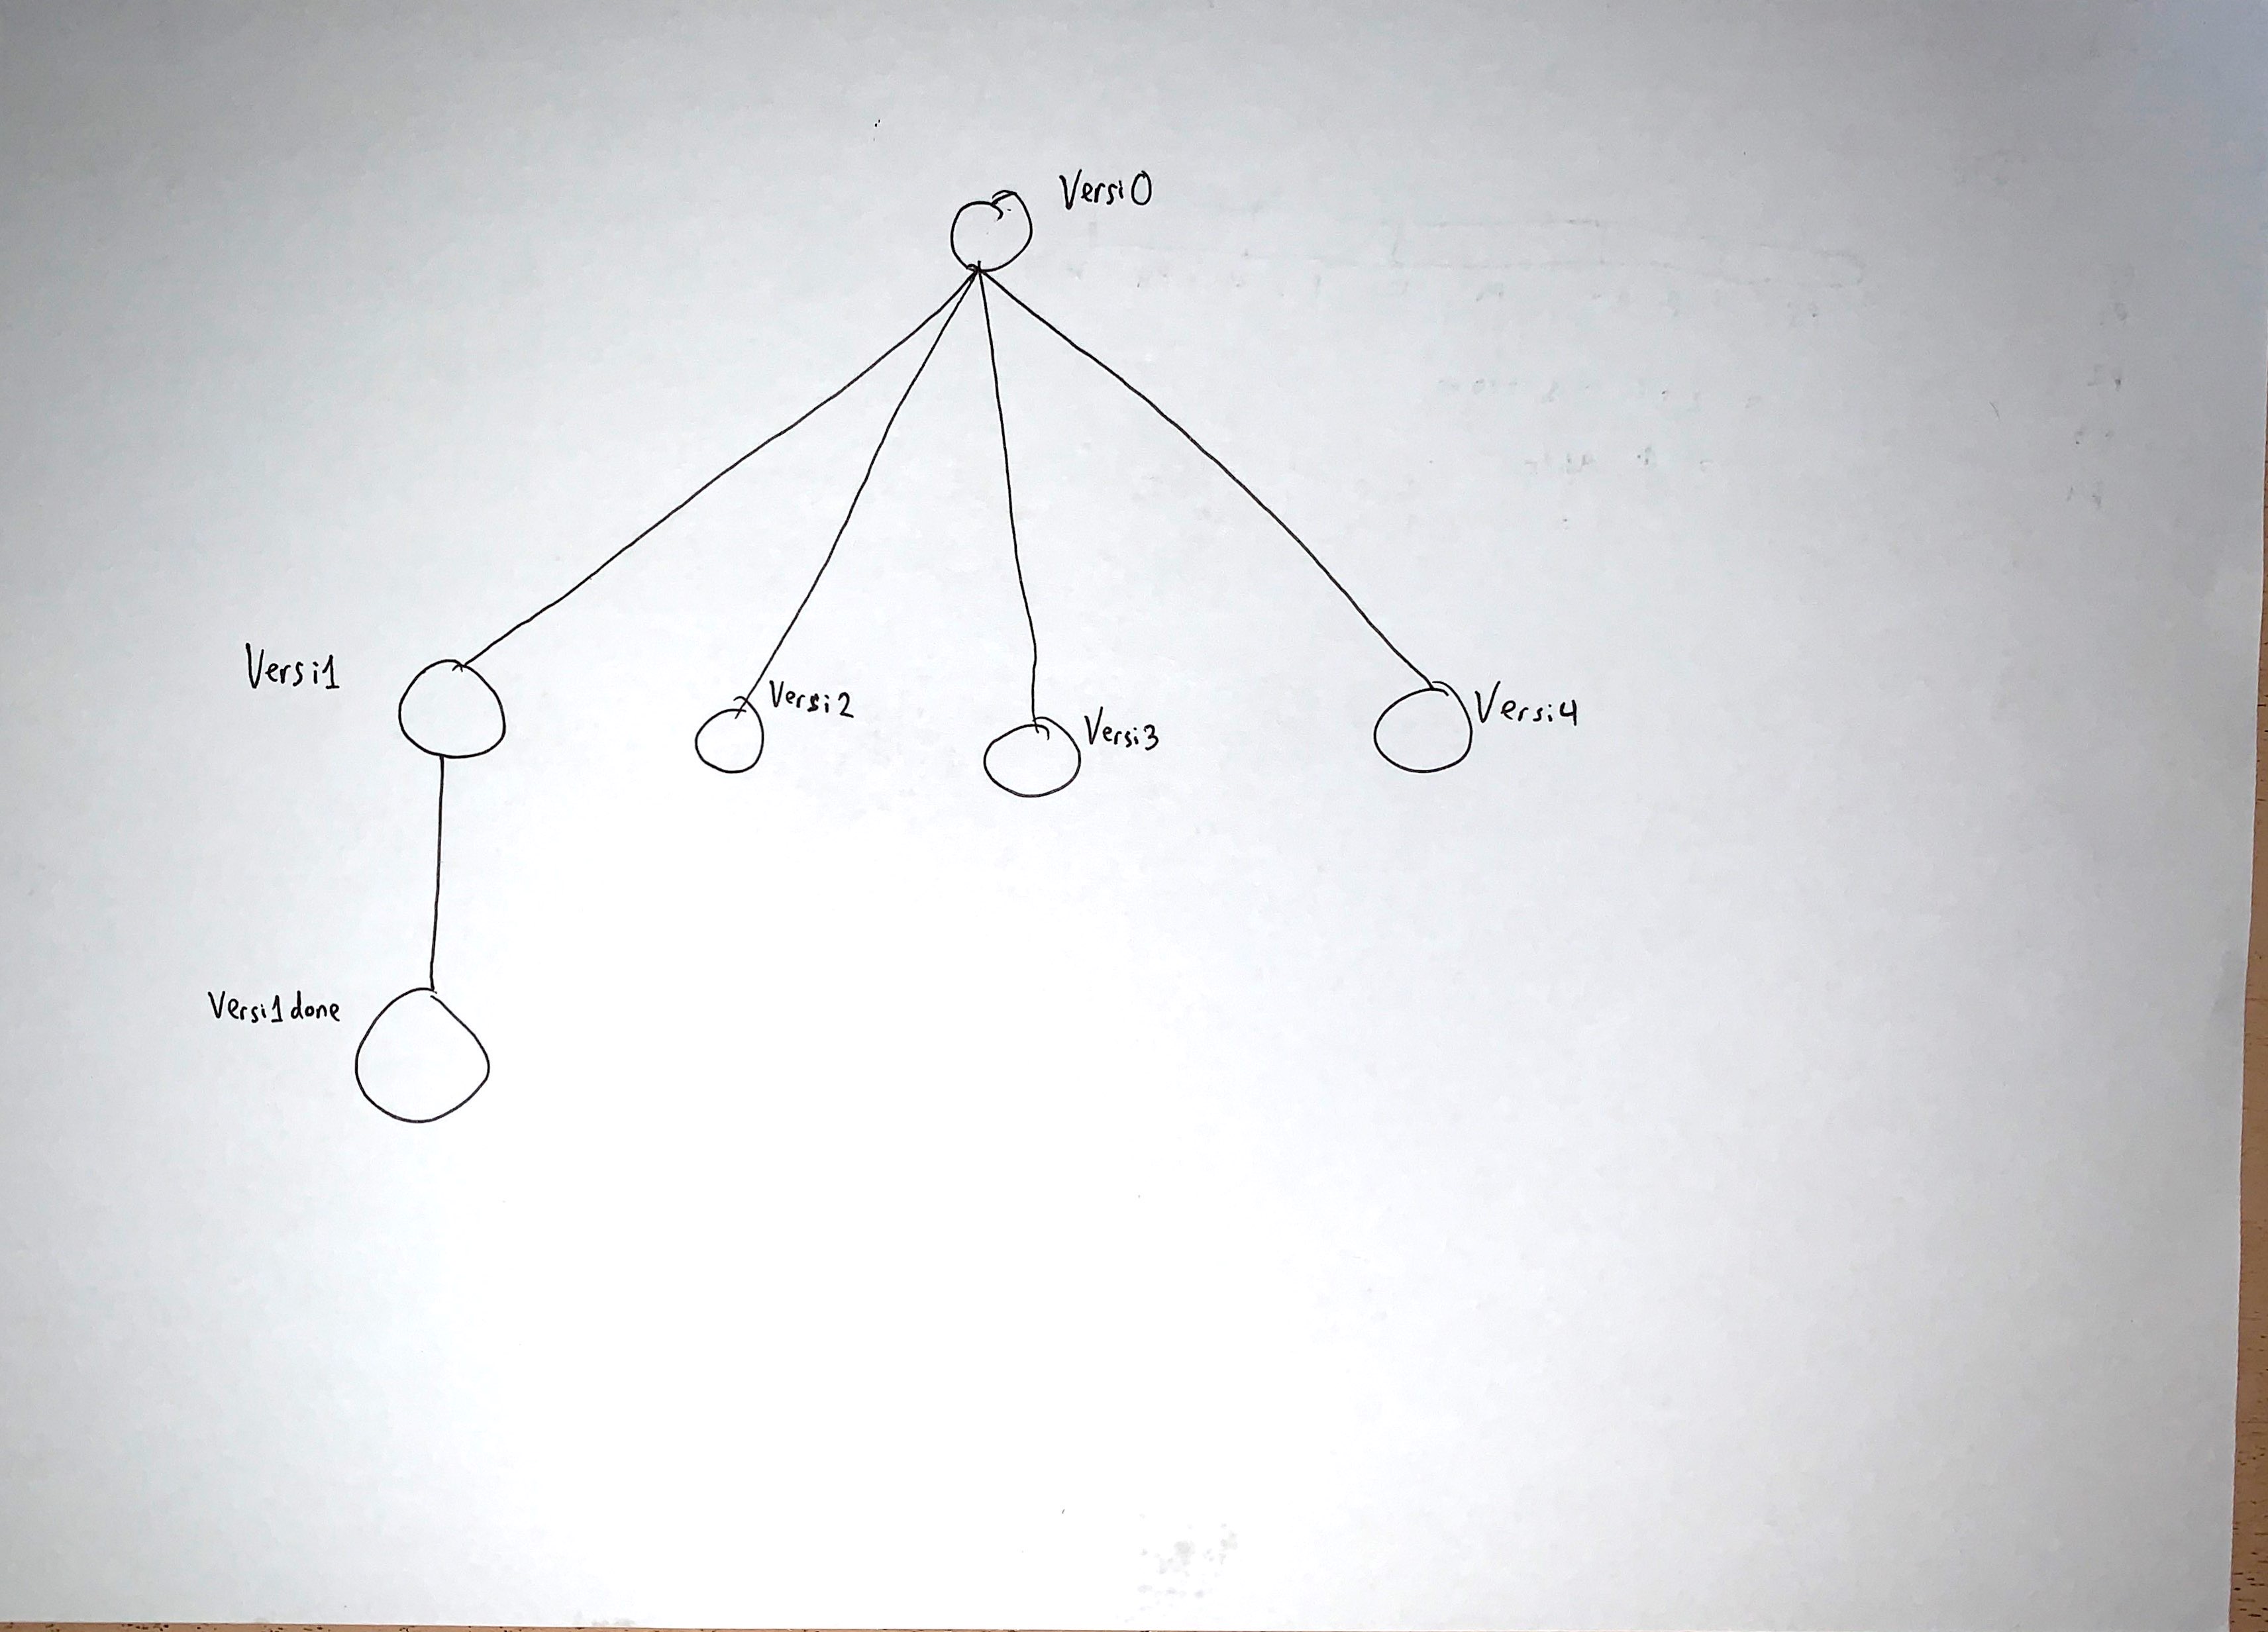 Versi0
Versi1
Versi2
Versi3
Versi4
Versi1done